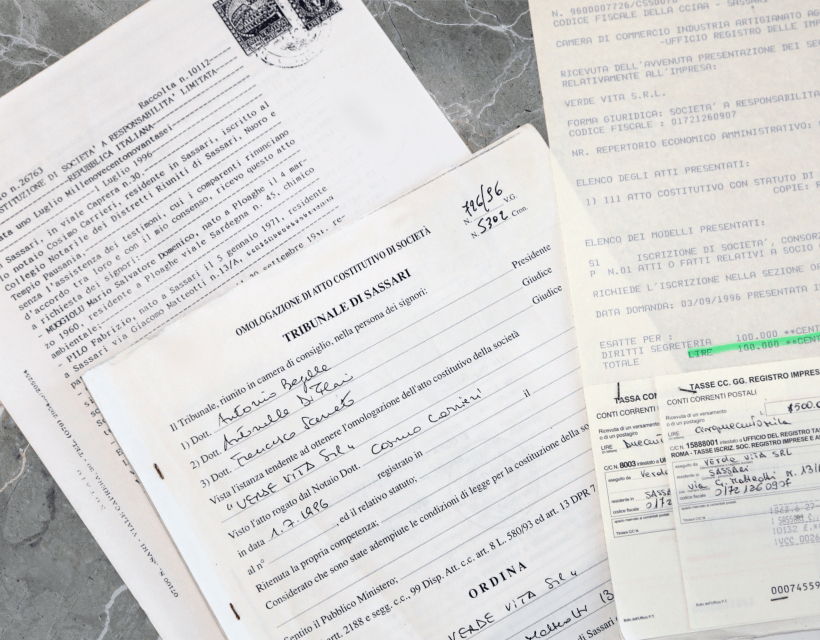 Raccolta n.10112
o n.26763
STITUZIONE DI SOCIETA' A RESPONSABILITA' LIMITATA
REPUBBLICA ITALIANA
ata uno Luglio Millenovecentonovantasei
1 Luglio 1996
Sassari, in viale Caprera n.30
notaio Cosimo Carrieri, residente in Sassari, iscritto al
Collegio Notarile dei Distretti Riuniti di Sassari, Nuoro e
Tempio Pausania,
senza l'assistenza dei testimoni, cui i comparenti rinunciano
d'accordo tra loro e con il mio consenso, ricevo questo atto
a richiesta dei signori:
MUGGIOLO Mario Salvatore Domenico, nato a Ploaghe il 4 mar-
zo 1960, residente a Ploaghe viale Sardegna n. 45, chimico
ambientale;
- PILO Fabrizio, nato a Sassari il 5 gennaio 1971, residente
a Sassari via Giacomo Matteotti n.13/A,
settembre
07100 SASSARI - VIALE CAPRERA, 30
796/96 V.G.
N. 5302 Cron.
OMOLOGAZIONE DI ATTO COSTITUTIVO DI SOCIETÀ
TRIBUNALE DI SASSARI
Il Tribunale, riunito in camera di consiglio, nella persona dei signori:
1) Dott. Antonio Presidente
2) Dott. Antonella Giudice
3) Dott. Francesco Giudice
Vista l'istanza tendente ad ottenere l'omologazione dell'atto costitutivo della società
"VERDE VITA Srl"
Visto l'atto rogato dal Notaio Dott. Cosimo Carrieri
in data 1.7.1996 registrato in il
al n° , ed il relativo statuto;
Ritenuta la propria competenza;
Considerato che sono state adempiute le condizioni di legge per la costituzione della so
Sentito il Pubblico Ministero;
artt. 2188 e segg. c.c., 99 Disp. Att. c.c. art. 8 L. 580/93 ed art. 13 DPR 7
ORDINA
VERDE VITA Srl
Matteotti 13
di Sassari
N. 9600007726/CSS0070
CODICE FISCALE DELLA CCIAA - SASSARI
CAMERA DI COMMERCIO INDUSTRIA ARTIGIANATO AG
-UFFICIO REGISTRO DELLE IMP
RICEVUTA DELL'AVVENUTA PRESENTAZIONE DEI SE
RELATIVAMENTE ALL'IMPRESA:
VERDE VITA S.R.L.
FORMA GIURIDICA: SOCIETA' A RESPONSABILITA
CODICE FISCALE : 01721260907
NR. REPERTORIO ECONOMICO AMMINISTRATIVO:
ELENCO DEGLI ATTI PRESENTATI:
1) 111 ATTO COSTITUTIVO CON STATUTO DI
COPIE:
ELENCO DEI MODELLI PRESENTATI:
S1 ISCRIZIONE DI SOCIETA', CONSORZ
P N.01 ATTI O FATTI RELATIVI A SOCIO
RICHIEDE L'ISCRIZIONE NELLA SEZIONE OR
DATA DOMANDA: 03/09/1996 PRESENTATA I
ESATTE PER :
DIRITTI SEGRETERIA 100.000 **CENT
TOTALE LIRE 100.000 **CENT
TASSA CO
CONTI CORRENTI
Ricevuta di un versamento
o di un postagiro
LIRE
C/C N. 8003 intestato a
eseguito da Verde
residente in SASSA
codice fiscale 0172
TASSE CC. GG. REGISTRO IMPRES
CONTI CORRENTI POSTALI
Ricevuta di un versamento
o di un postagiro
LIRE cinquecentomila
C/C N. 15888001 intestato a UFFICIO DEL REGISTRO TA
ROMA - TASSE ISCRIZ. SOC. REGISTRO IMPRESE E A
eseguito da VERDE VITA SRL
residente in SASSARI
via G. Matteotti N. 13/
codice fiscale 01721260907
0007455